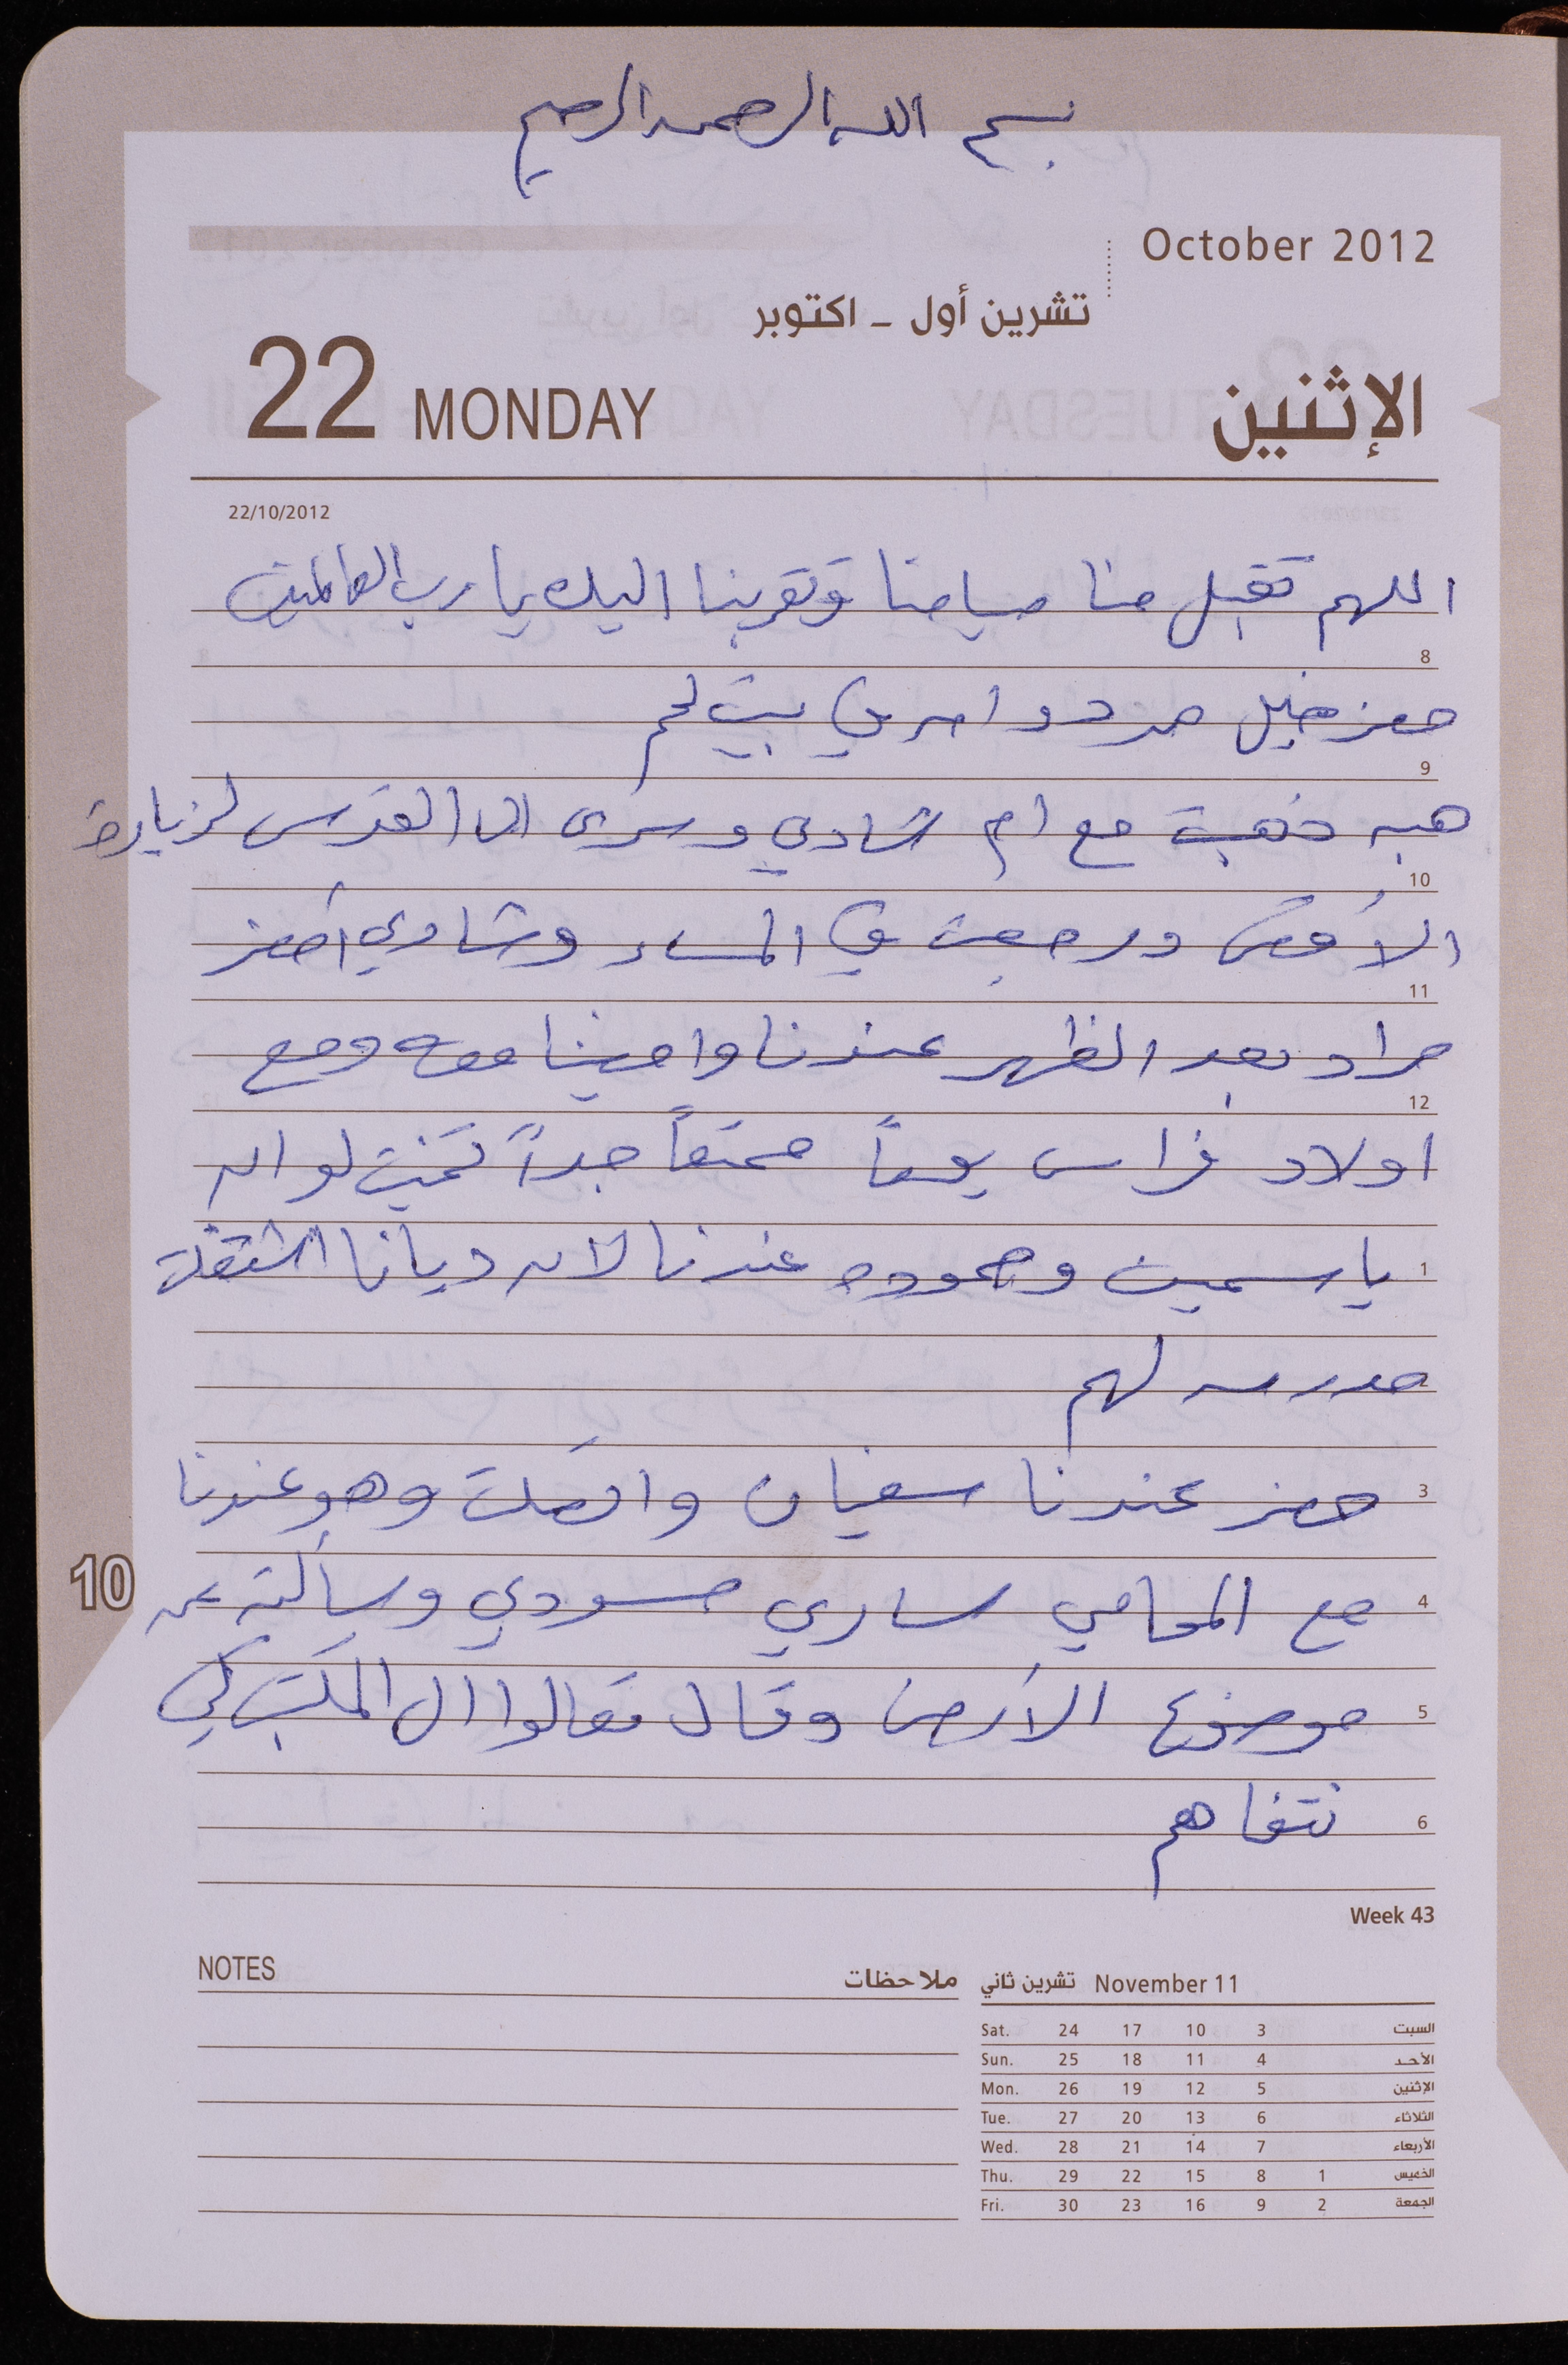 بسم الله الرحمن الرحيم
October 2012
تشرين أول - اكتوبر
22 MONDAY الإثنين
22/10/2012
اللهم تقبل منا صيامنا وتقربنا اليك يا رب العالمين
8
بيت لحم
9
هبه ذهبت مع ام شادي وسرى الى القدس لزيارة
10
الأقصى ورجعت في المساء وشادي أحضر
11
مراد بعد الظهر عندنا وامضينا معه ومع
12
اولاد فراس يوماً ممتعاً جداً تمنيت لو ان
1 ياسمين وحموده عندنا لان ديانا اشتغلت
مدرسه لهم
3 حضر عندنا سفيان واتصلت وهو عندنا
4 مع المحامي ساري مسودي وسألته عن
5 موضوع الأرض وقال تعالوا الى المكتب لكي
6 نتفاهم
Week 43
10
NOTES ملاحظات
تشرين ثاني November 11
Sat. 24 17 10 3 السبت
Sun. 25 18 11 4 الأحد
Mon. 26 19 12 5 الإثنين
Tue. 27 20 13 6 الثلاثاء
Wed. 28 21 14 7 الأربعاء
Thu. 29 22 15 8 1 الخميس
Fri. 30 23 16 9 2 الجمعة